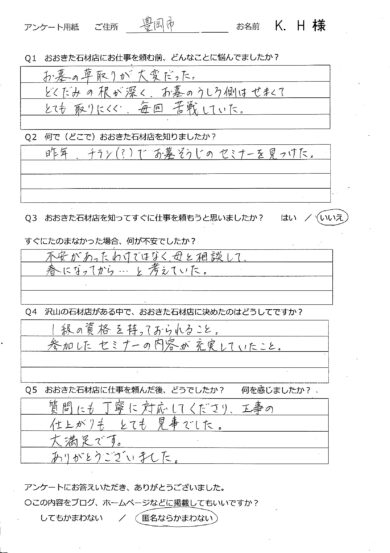 アンケート用紙　ご住所　豊岡市　お名前　K. H 様
Q1　おおきた石材店にお仕事を頼む前、どんなことに悩んでましたか？
お墓の草取りが大変だった。
どくだみの根が深く、お墓のうしろ側はせまくて
とても取りにくく、毎回苦戦していた。
Q2　何で（どこで）おおきた石材店を知りましたか？
昨年、チラシ(?)でお墓そうじのセミナーを見つけた。
Q3　おおきた石材店を知ってすぐに仕事を頼もうと思いましたか？　はい　／　いいえ
すぐにたのまなかった場合、何が不安でしたか？
不安があったわけではなく、母と相談して、
春になってから…と考えていた。
Q4　沢山の石材店がある中で、おおきた石材店に決めたのはどうしてですか？
1級の資格を持っておられること。
参加したセミナーの内容が充実していたこと。
Q5　おおきた石材店に仕事を頼んだ後、どうでしたか？　何を感じましたか？
質問にも丁寧に対応してくださり、工事の
仕上がりも とても見事でした。
大満足です。
ありがとうございました。
アンケートにお答えいただき、ありがとうございました。
〇この内容をブログ、ホームページなどに掲載してもいいですか？
してもかまわない　／　匿名ならかまわない